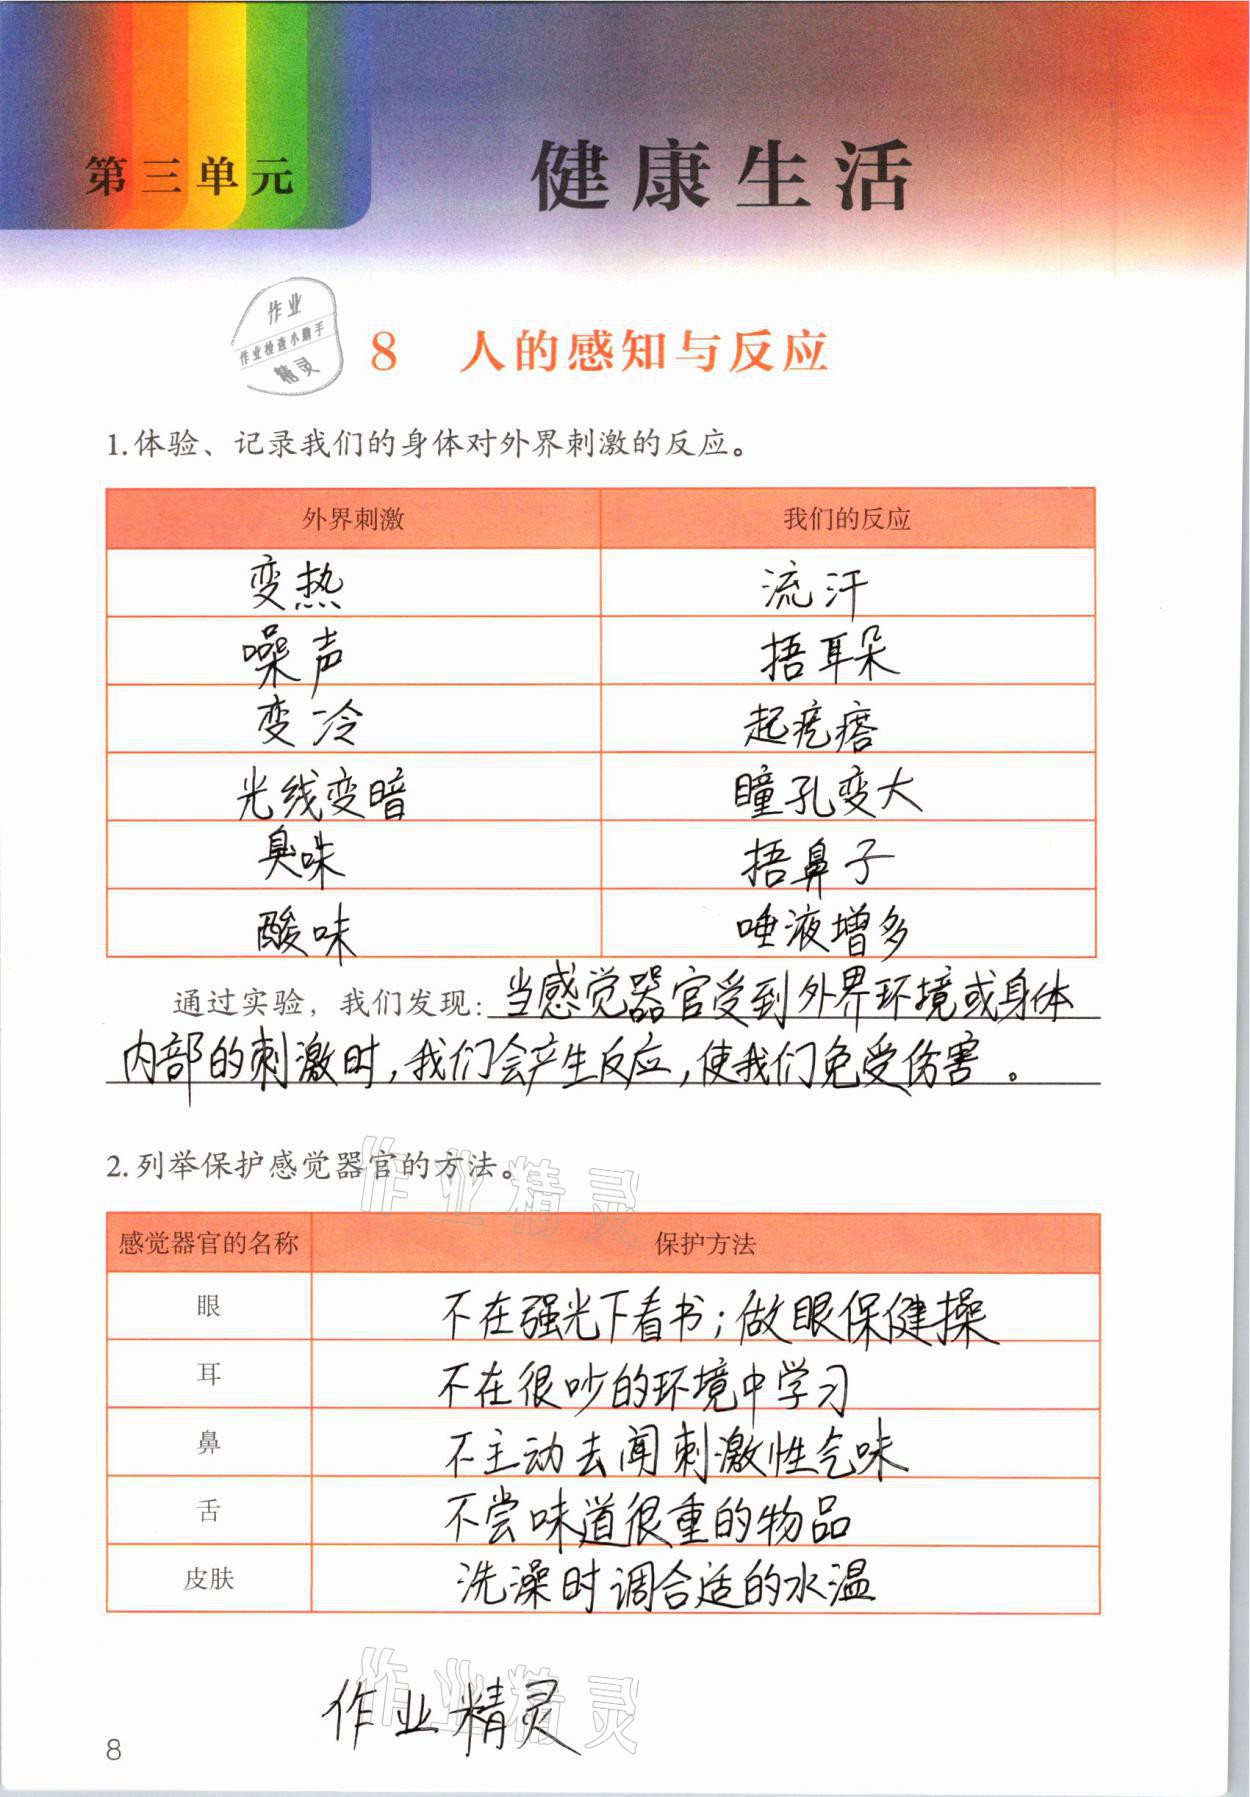 第三单元
健康生活
作业
作业检查小助手
精灵
8 人的感知与反应
1.体验、记录我们的身体对外界刺激的反应。
外界刺激 我们的反应
变热 流汗
噪声 捂耳朵
变冷 起疙瘩
光线变暗 瞳孔变大
臭味 捂鼻子
酸味 唾液增多
通过实验，我们发现：当感觉器官受到外界环境或身体
内部的刺激时，我们会产生反应，使我们免受伤害。
2.列举保护感觉器官的方法。
作业精灵
感觉器官的名称 保护方法
眼 不在强光下看书；做眼保健操
耳 不在很吵的环境中学习
鼻 不主动去闻刺激性气味
舌 不尝味道很重的物品
皮肤 洗澡时调合适的水温
作业精灵
作业精灵
8